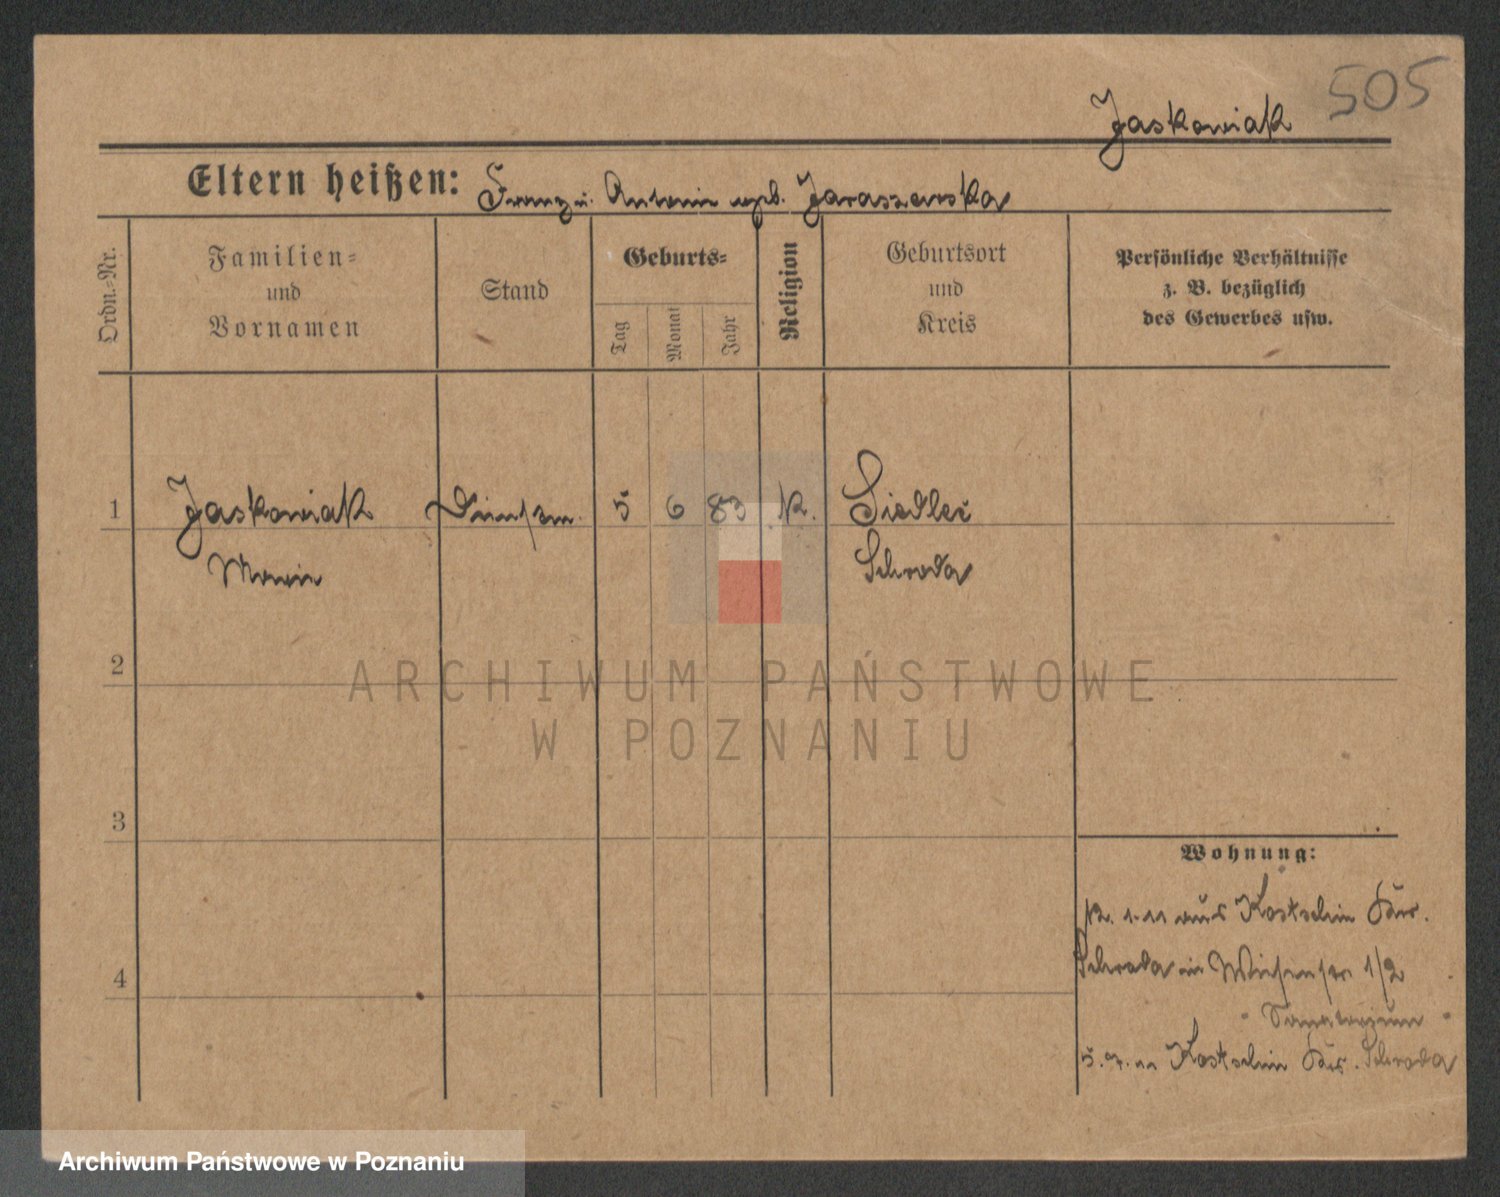 505
Jaskowiak
Eltern heißen: Franz u. Antonie geb. Jaraszewska
Ordn.-Nr.
Familien-
und
Vornamen
Stand
Geburts-
Tag
Monat
Jahr
Religion
Geburtsort
und
Kreis
Persönliche Verhältnisse
z. B. bezüglich
des Gewerbes usw.
1 Jaskowiak 5 6 83 K. Siedlec
Maria Schroda
2
3
4
Wohnung:
1.11 aus Kostschin Kr.
Schroda in Wiesenstr 1/2
Sanatorium
5.7.11 Kostschin Kr. Schroda
ARCHIWUM PAŃSTWOWE
W POZNANIU
Archiwum Państwowe w Poznaniu